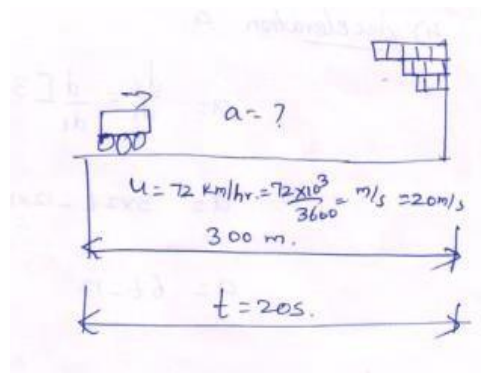 a = ?
u = 72 km/hr. = 72×10³/3600 = m/s = 20m/s
300 m.
t = 20s.